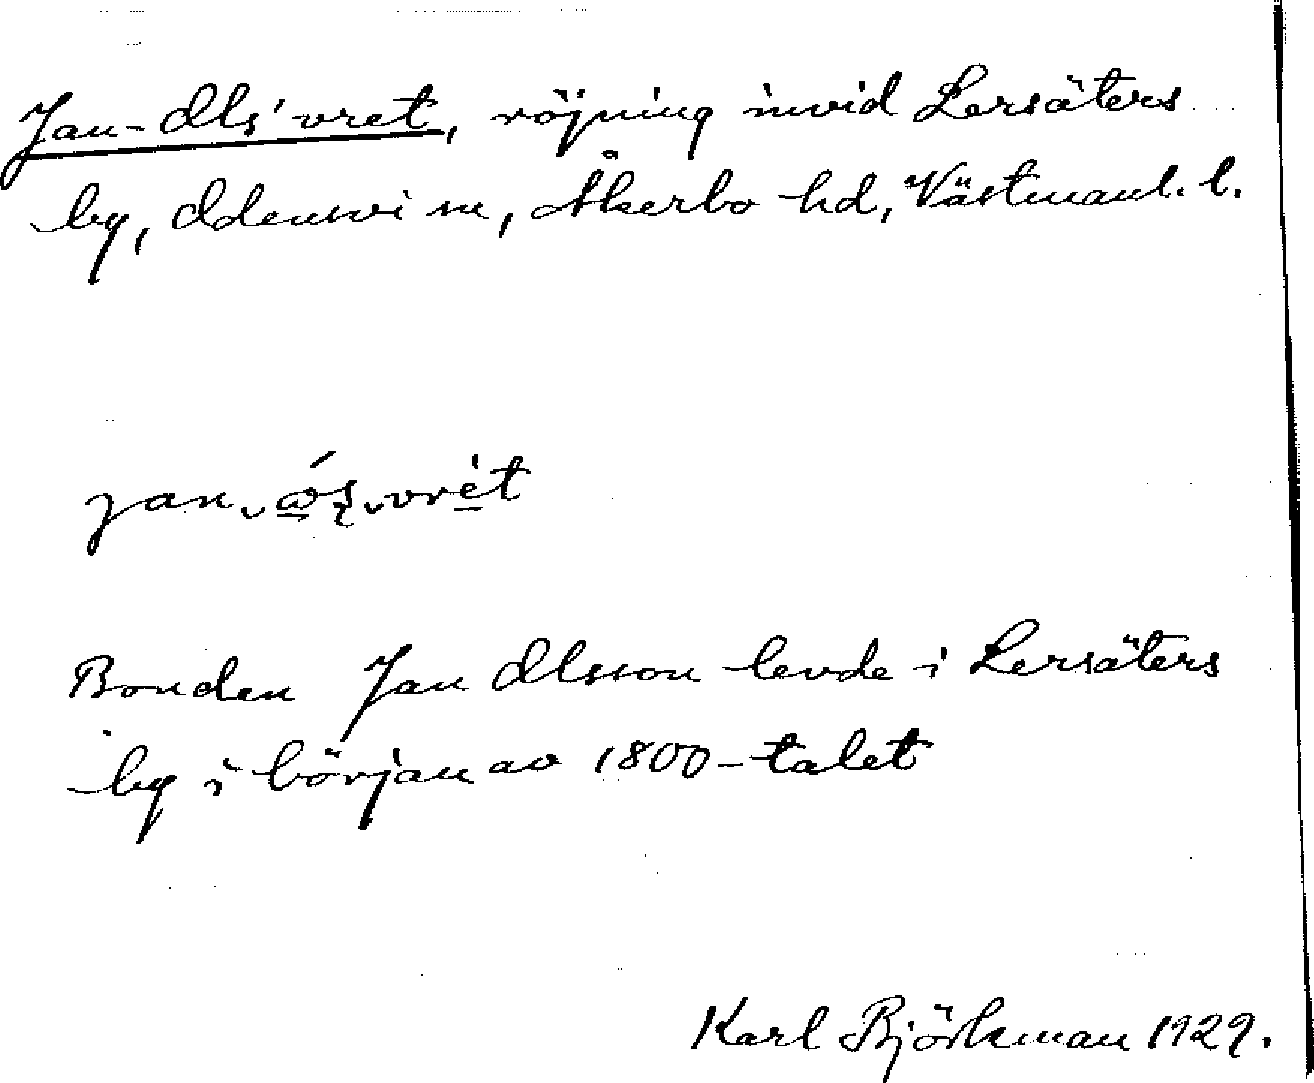 Jan-Ols' vret, röjning invid Lersäters
by, Odensvi sn, Åkerbo hd, Västmanl. l.
Bonden Jan Olsson levde i Lersäters
by i början av 1800-talet
Karl Björkman 1929.